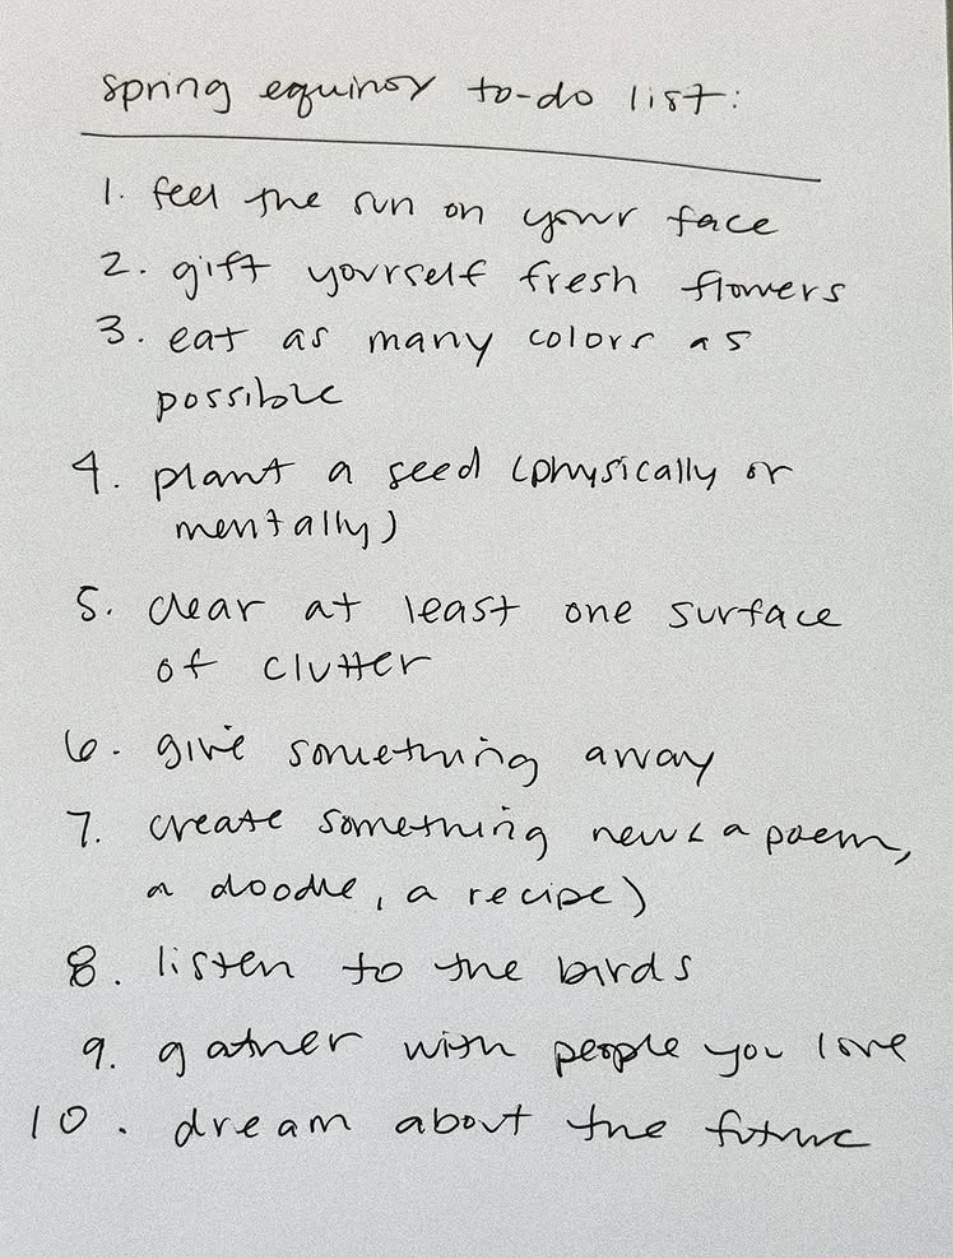 spring equinox to-do list:
1. feel the sun on your face
2. gift yourself fresh flowers
3. eat as many colors as
possible
4. plant a seed (physically or
mentally)
5. clear at least one surface
of clutter
6. give something away
7. create something new (a poem,
a doodle, a recipe)
8. listen to the birds
9. gather with people you love
10. dream about the future